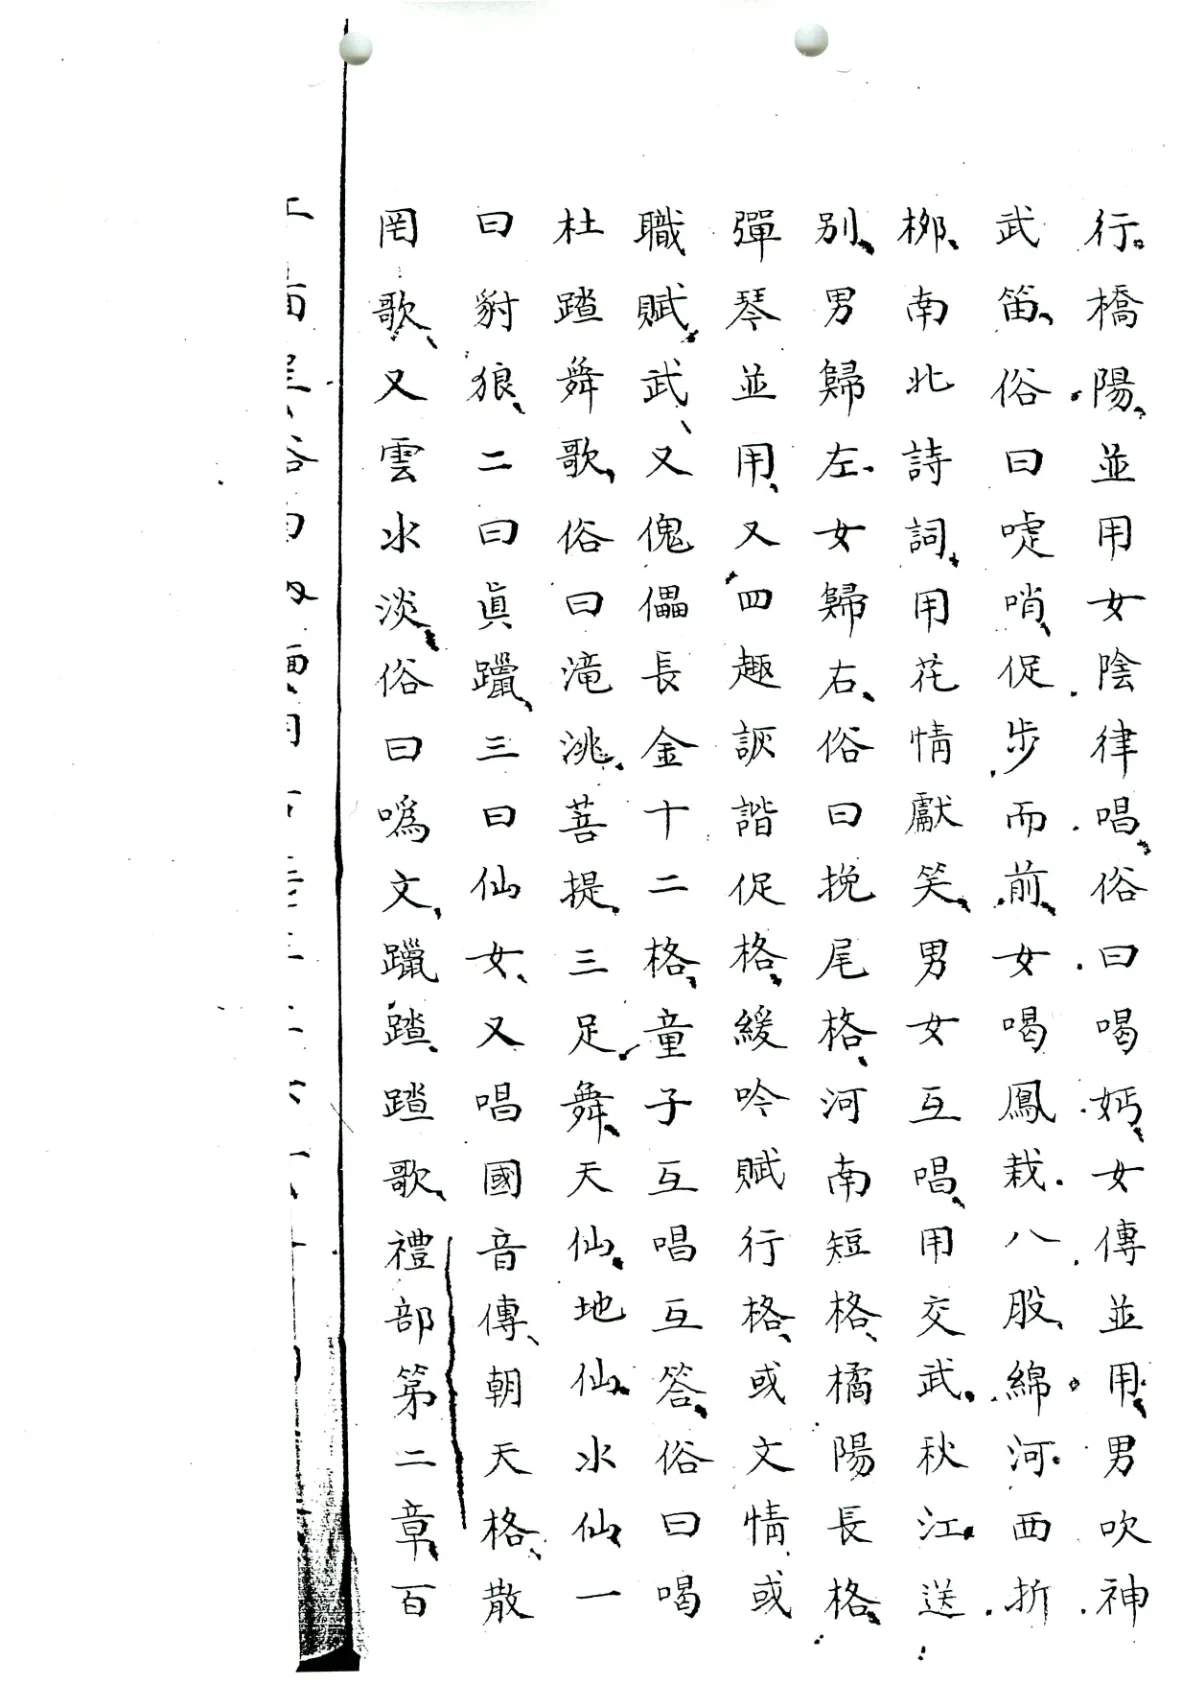 行。橋陽、並用女陰律唱、俗曰喝妈、女傳並用、男吹神
武笛、俗曰唗哨、促步而前、女喝鳳栽八股、綿河西折
柳、南北詩詞、用花情獻笑、男女互唱、用交武、秋江送
别、男歸左女歸右、俗曰挽尾格、河南短格、橘陽長格、
彈琴並用、又四趣詼諧促格、緩吟賦行格、或文情或
職賦、武武、又傀儡長金十二格、童子互唱互答、俗曰喝
杜踏舜歌、俗曰滝洮、菩提三足舞、天仙、地仙、水仙一
曰豺狼、二曰眞躐、三曰仙女、又唱國音傳、朝天格、散
罔歌、又雲水淡、俗曰噅文、躐踏、踏歌、禮部第二章、百